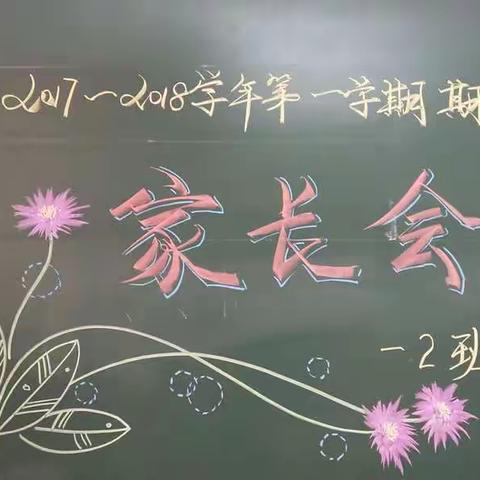 2017-2018学年第一学期期
家长会
-2班